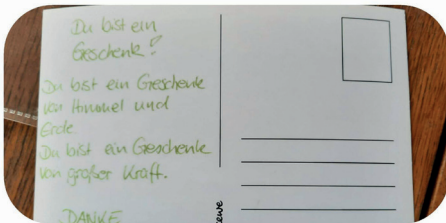 Du bist ein
Geschenk!
Du bist ein Geschenk
von Himmel und
Erde
Du bist ein Geschenk
von großer Kraft.
DANKE